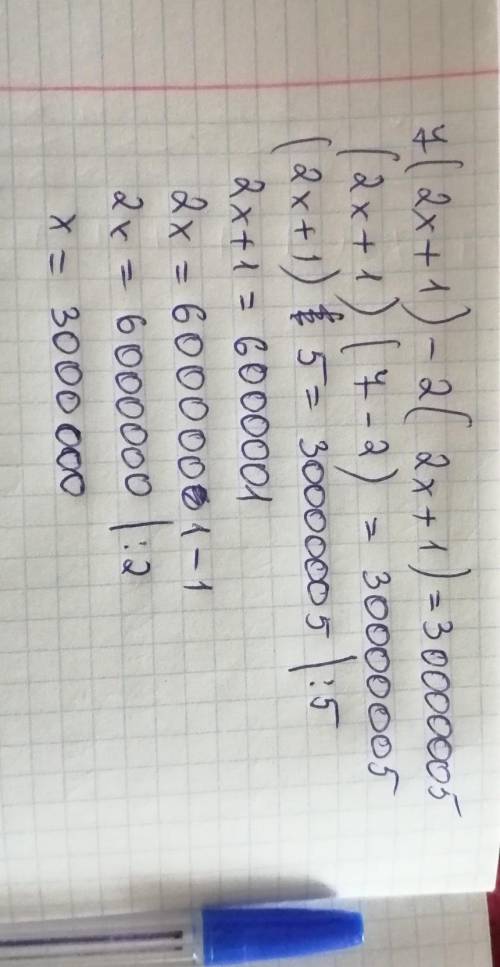 7(2x+1)-2(2x+1)=30000005
(2x+1)(7-2)=30000005
(2x+1) 5=30000005 |:5
2x+1=6000001
2x=6000001-1
2x=6000000 |:2
x=3000 000